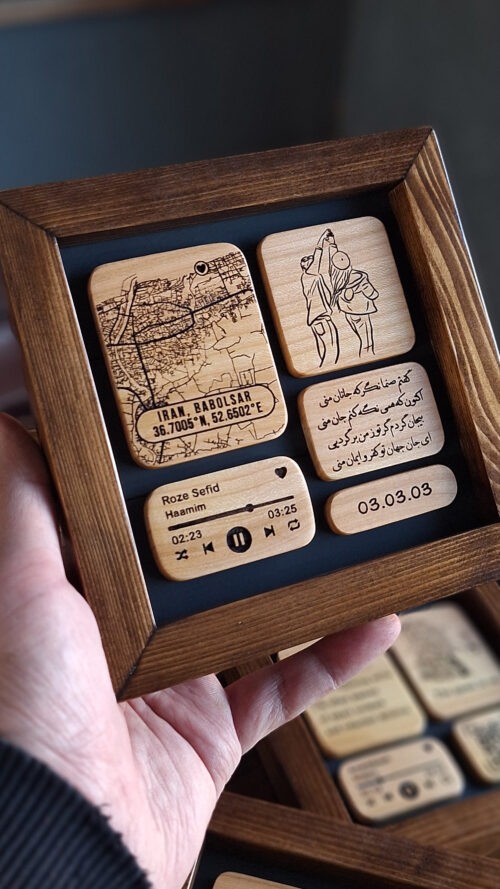 IRAN, BABOLSAR
36.7005°N, 52.6502°E
گفتم صنما نگر که جانان منی
اکنون که همی نگه کنم جان منی
بیجان گردم گر تو ز من برگردی
ای جان جهان تو کفر و ایمان منی
Roze Sefid
Haamim
02:23
03:25
03.03.03